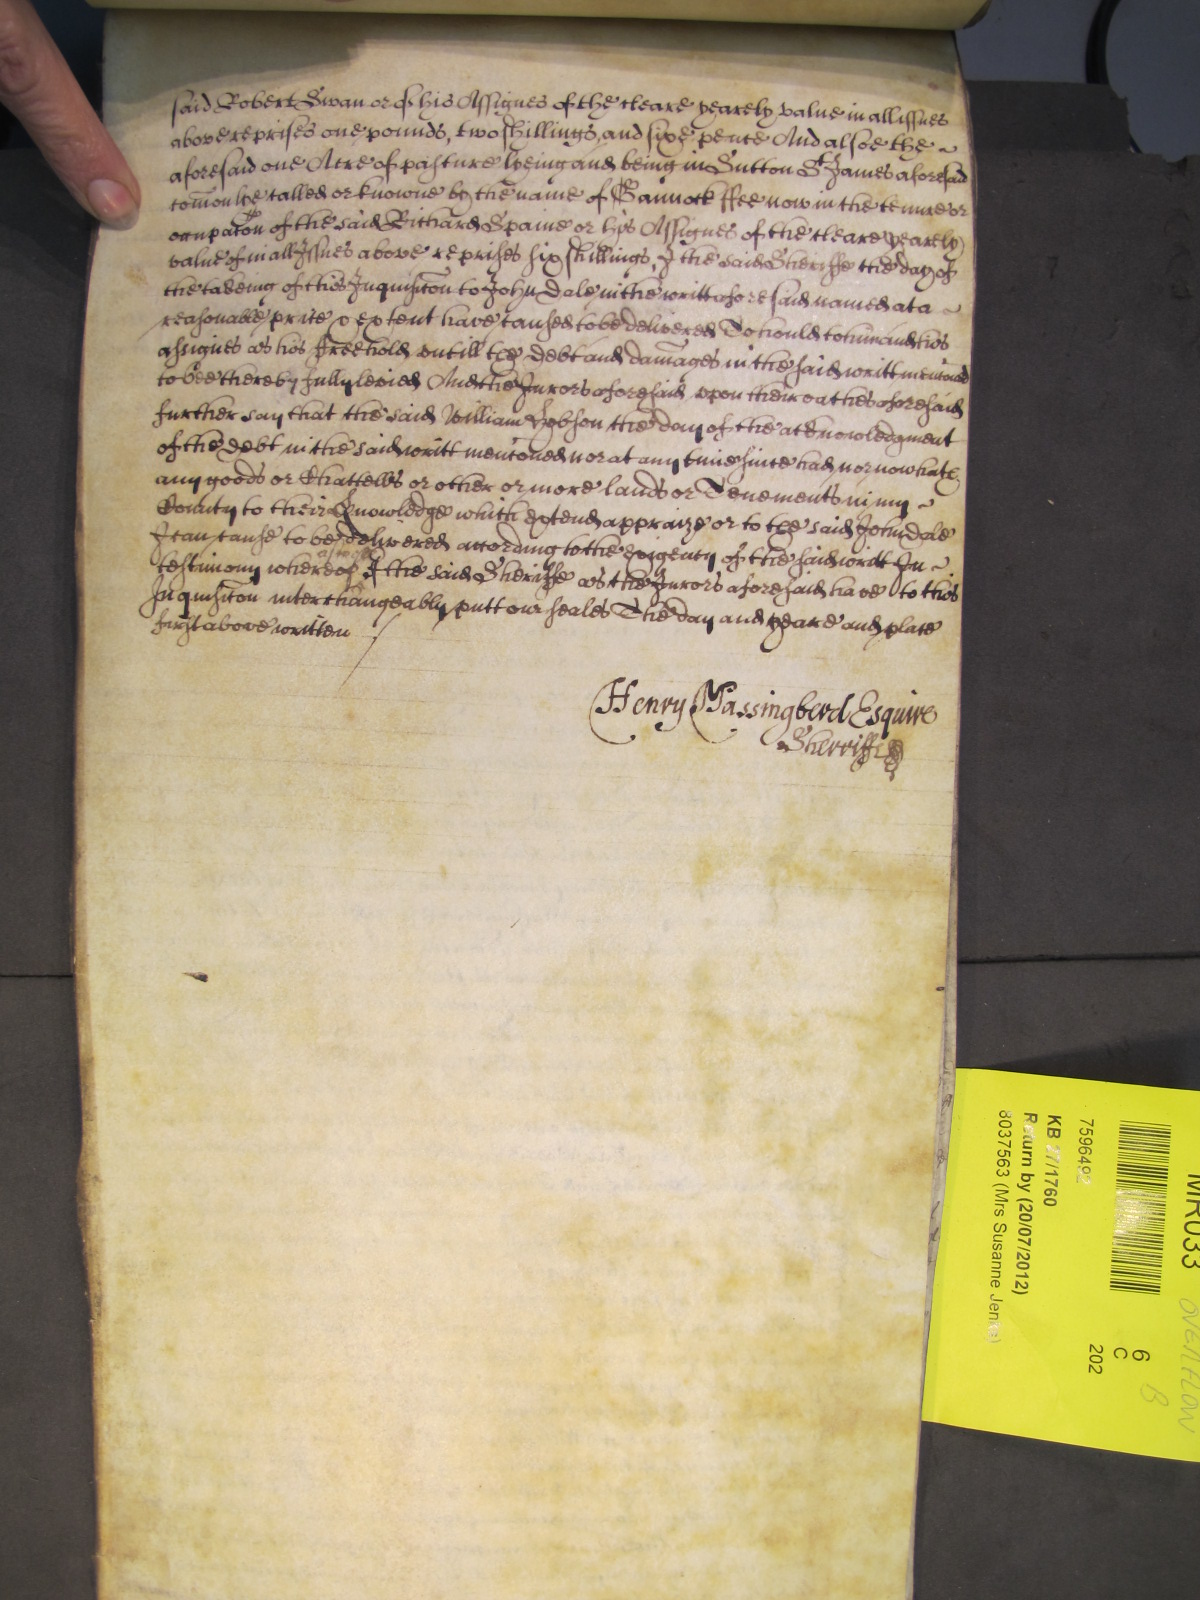 said Robert Swan or of his Assignes of the cleare yearely value in all issues
above reprises one pounds, two shillings, and sixe pence And alsoe the ~
aforesaid one Acre of pasture lyeing and being in Sutton St James aforesaid
comonlye called or knowne by the name of Bannock ffee now in the tenure or
occupacon of the said Richard Spaine or his Assignes of the cleare yearely
value of in all Issues above reprises six shillings, I the said Sheriffe the day of
the takeing of this Inquisicon to John Dale in the writt aforesaid named at a ~
reasonable price & extent have caused to be delivered To hould to him and his
assignes as his freehold untill the debt and damages in the said writt menconed
to bee thereby fully levied And the Jurors aforesaid upon their oathes aforesaid
further say that the said William Hobson the day of the acknowledgment
of the debt in the said writt menconed nor at any time since had, nor now hath
any goods or Chattells or other or more lands or Tenements in my ~
County to their knowledge which extend appraize or to the said John Dale
I can cause to be delivered according to the exigency of the said writt In ~
testimony whereof I the said Sheriffe as the Jurors aforesaid have to this
Inquisicon interchangeably putt our seales The day and yeare and place
first above written
Henry Massingberd Esquire
Sherriffe
MR033
OVERFLOW
B
6
C
202
7596492
KB /1760
Return by (20/07/2012)
8037563 (Mrs Susanne